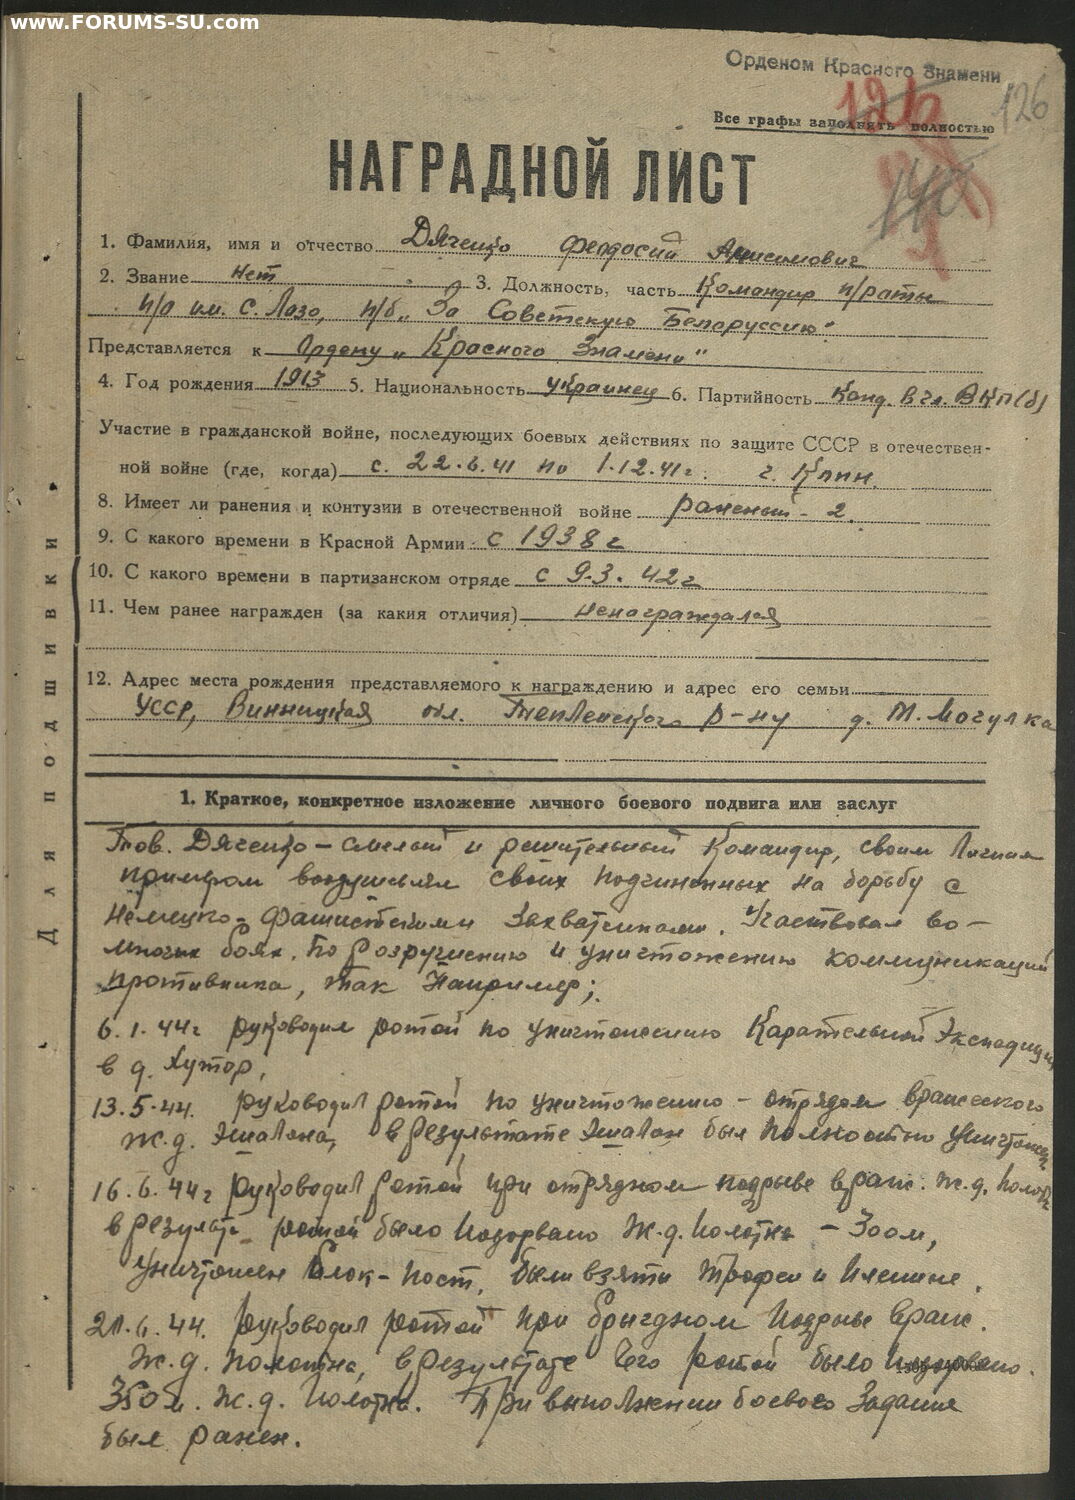 www.FORUMS-SU.com
Орденом Красного Знамени
126
126
140
Все графы заполнять полностью
НАГРАДНОЙ ЛИСТ
1. Фамилия, имя и отчество Дяченко Феодосий Анисимович
2. Звание нет 3. Должность, часть Командир п/роты
п/о им. С. Лазо, п/б „За Советскую Белоруссию"
Представляется к Ордену „Красного Знамени"
4. Год рождения 1913 5. Национальность украинец 6. Партийность Канд. в чл. ВКП(б)
Участие в гражданской войне, последующих боевых действиях по защите СССР в отечествен-
ной войне (где, когда) с 22.6.41 по 1.12.41 г. г. Клин.
8. Имеет ли ранения и контузии в отечественной войне раненый - 2.
9. С какого времени в Красной Армии с 1938 г
10. С какого времени в партизанском отряде с 9.3.42 г
11. Чем ранее награжден (за какия отличия) ненаграждался
12. Адрес места рождения представляемого к награждению и адрес его семьи
УССР, Винницкая обл. р-ну д. М. Могулка
Для подшивки
1. Краткое, конкретное изложение личного боевого подвига или заслуг
Тов. Дяченко – смелый и решительный Командир, своим личным
примером воодушевлял своих подчиненных на борьбу с
немецко-фашистскими захватчиками. Участвовал во-
многих боях. По разрушению и уничтожению коммуникаций
противника, так Например;
6.1.44 г руководил ротой по уничтожению Карательной Экспедиции
в д. Хутор,
13.5.44. руководил ротой по уничтожению – отрядом вражеского
ж.д. эшалона, в результате эшалон был полностью уничтожен.
16.6.44 г руководил ротой при отрядном подрыве враж. ж.д. полотн
в результ. ротой было подорвано ж.д. полотна – 300м,
уничтожен блок-пост, были взяты трофеи и пленные.
21.6.44. руководил ротой при бригдном подрыве враж.
ж.д. полотна, в результате чего ротой было подорвано.
350 м. ж.д. полотна. При выполнении боевого задания
был ранен.